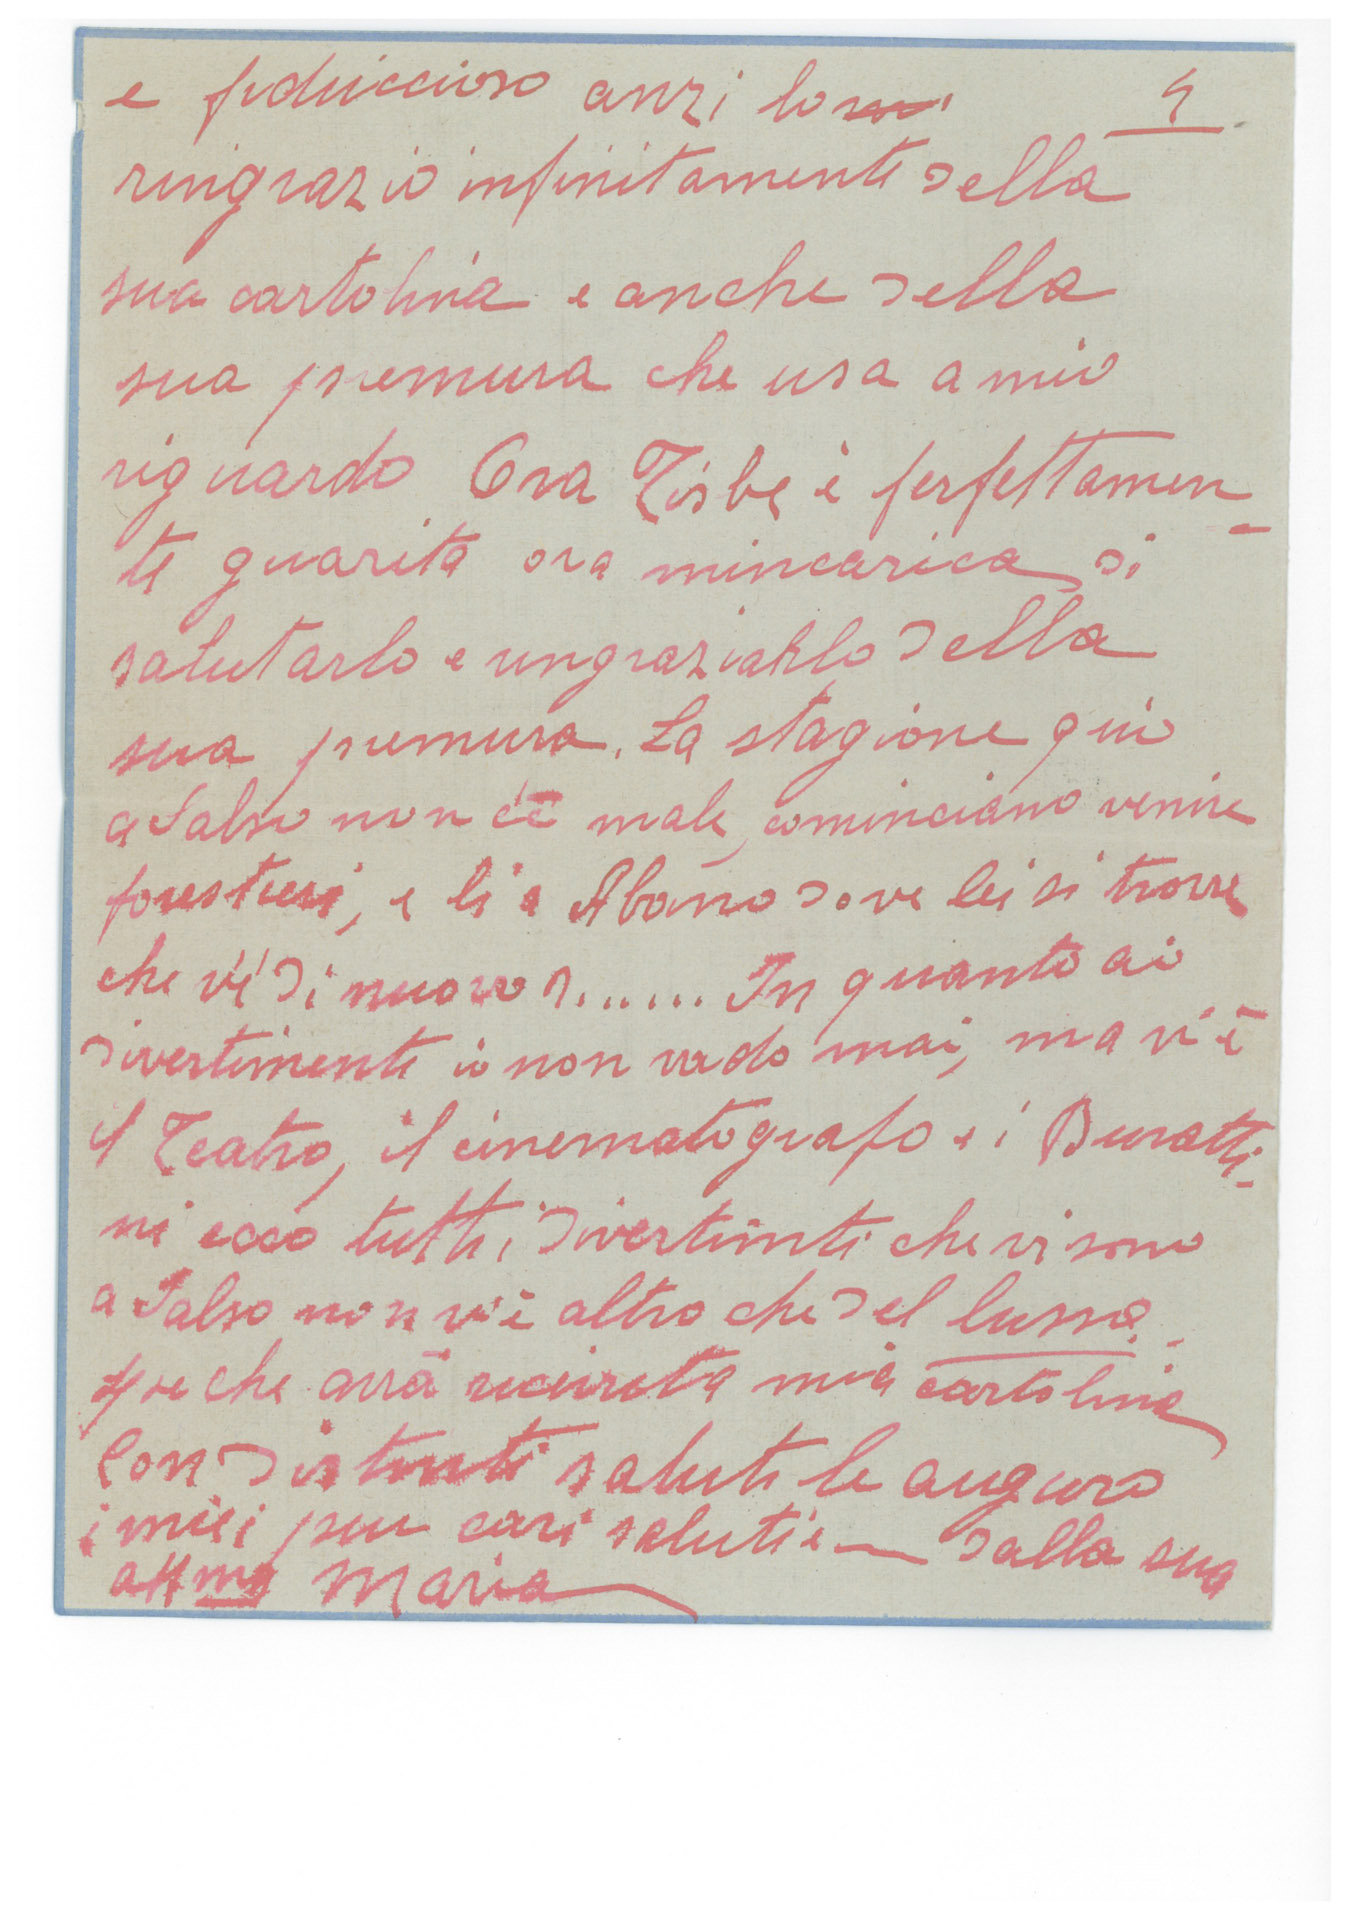 e fiduccioso anzi lo 4
ringrazio infinitamente della
sua cartolina e anche della
sua premura che usa a mio
riguardo Ora Tisbe è perfettamen
te guarita ora mincarica di
salutarlo e ringraziarlo della
sua premura. La stagione qui
a Salso non c'è male, cominciano venire
forestieri, e li a Abano dove lei si trova
che v'è di nuovo?...... In quanto ai
divertimenti io non vado mai, ma v'è
il Teatro, il cinematografo e i Buratti-
ni ecco tutti i divertimti che vi sono
a Salso non v'è altro che del lusso.
che avrà ricevuta mia cartolina
Con distinti saluti le auguro
i miei piu cari saluti e dalla sua
affma Maria